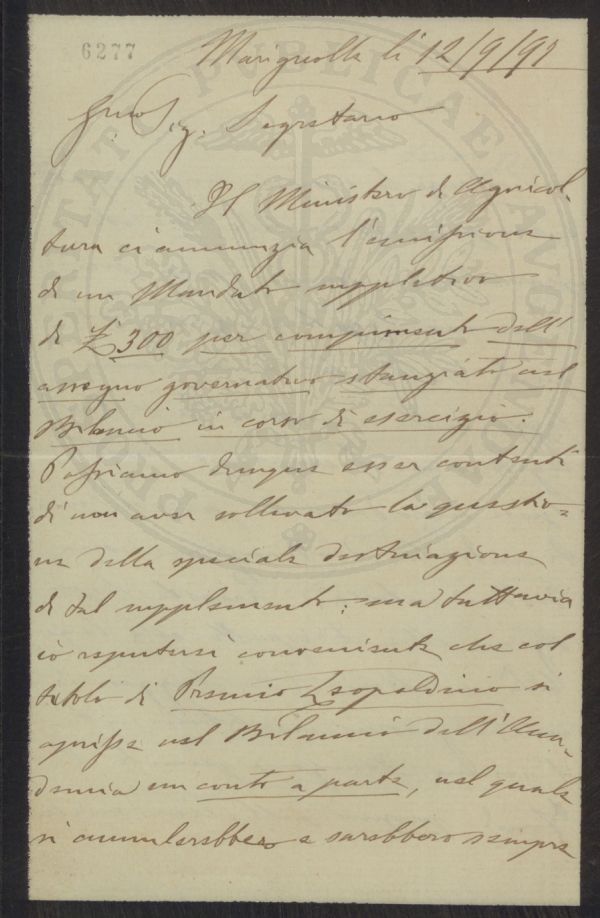 6277
Marignolle li 12/9/91
Sig. Segretario
Il Ministero di Agricol-
tura ci annunzia l'emissione
di un Mandato suppletivo
di £ 300 per compimento dell'
assegno governativo stanziato nel
Bilancio in corso di esercizio.
Possiamo dunque esser contenti
di non aver sollevato la questio=
ne della speciale destinazione
di tal supplemento: ma tuttavia
io reputerei conveniente che col
titolo di Premio Leopoldino si
aprisse nel Bilancio dell'Acca-
demia un conto a parte, nel quale
si cumulerebbero e sarebbero sempre
PROSPERITATI PUBLICAE AUGENDAE